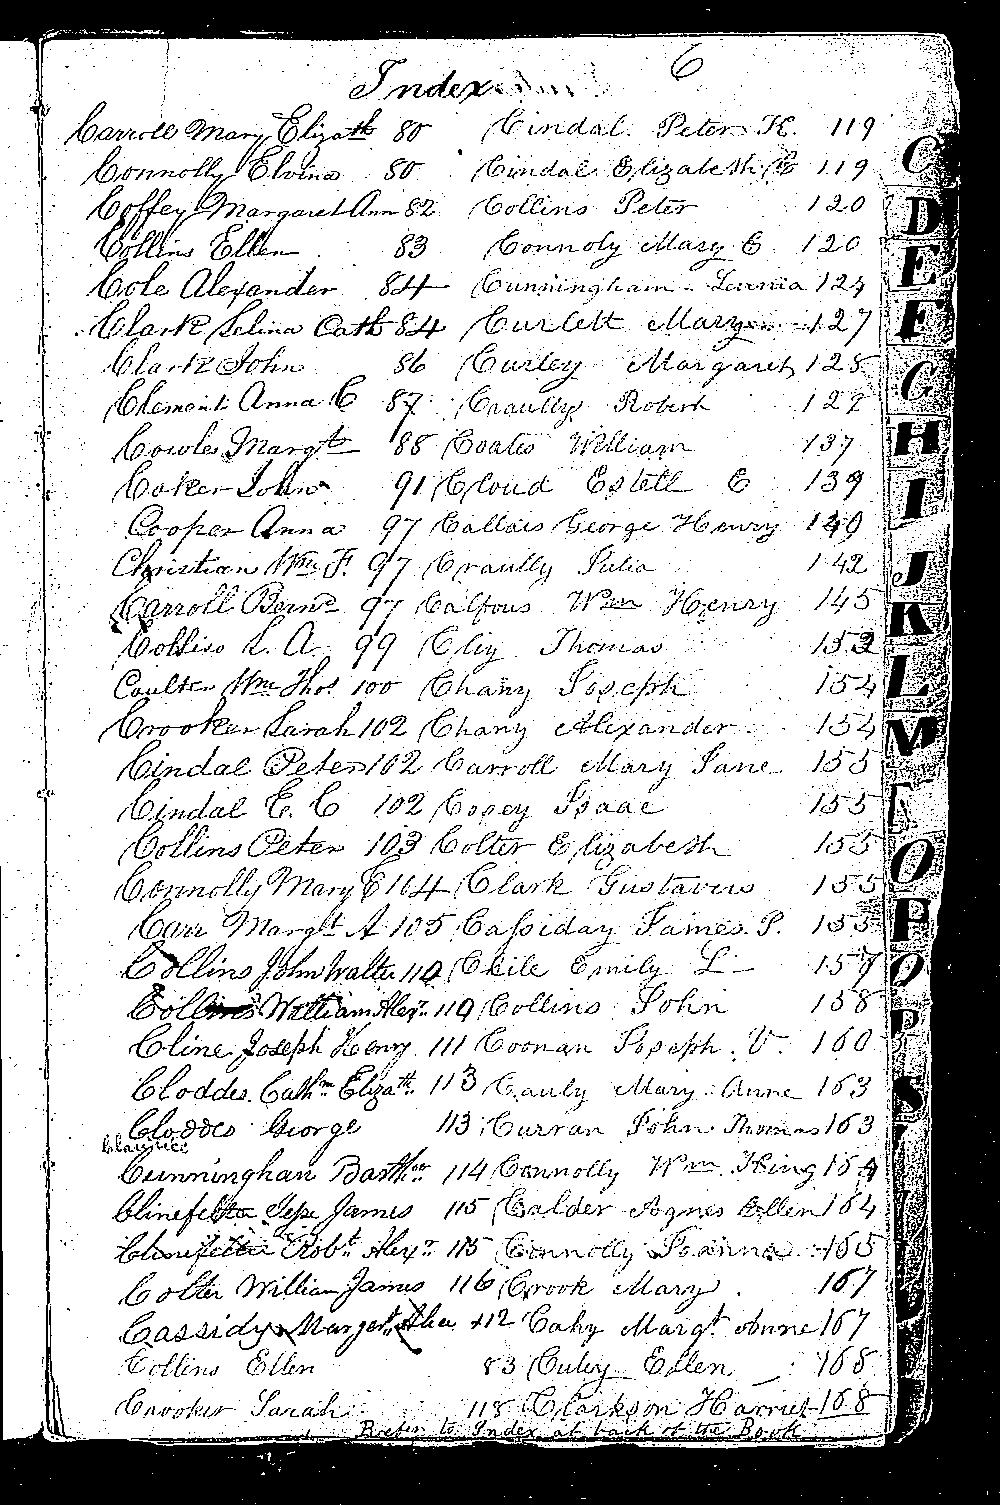 Index
6
Carroll Mary Elizath 80
Connolly Elvina 80
Coffey Margaret Ann 82
Collins Ellen 83
Cole Alexander 84
Clark Selina Cath 84
Clark John 86
Clement Anna C 87
Cowles Margt 88
Coker John 91
Cooper Anna 97
Christian Wm F. 97
Carroll Bernd 97
L. A. 99
Coulter Wm Thos 100
Crooker Sarah 102
Cindal Peter 102
Cindal E. C 102
Collins Peter 103
Connolly Mary E 104
Carr Margt A 105
Collins John Walter 110
Collins William Alexr 110
Cline Joseph Henry 111
Cloddes Cathn Elizath 113
Cloddes George 113
Cunningham Barthw 114
Clinefelter Jesse James 115
Clinefelter Robt Alexr 115
Colter William James 116
Cassidy Marget Alice 112
Collins Ellen 83
Crooker Sarah 118
Cindal Peter K. 119
Cindal Elizabeth 119
Collins Peter 120
Connoly Mary E 120
Cunningham Lavinia 124
Curlett Mary 127
Curley Margaret 128
Craully Robert 129
Coates William 137
Cloud Estell E 139
Callais George Henry 140
Craully Julia 142
Calfous Wm Henry 145
Thomas 153
Chany Joseph 154
Chany Alexander 154
Carroll Mary Jane 155
Copey Isaac 155
Colter Elizabeth 155
Clark Gustavus 155
Cassiday James P. 155
Emily L 157
Collins John 158
Coonan Joseph V. 160
Cauly Mary Anne 163
Curran John Thomas 163
Connolly Wm King 164
Calder Agnes Ellen 164
Connolly Joanna 165
Crook Mary 167
Cahy Margt Anne 167
Culey Ellen 168
Clarkson Harriet 168
Refer to Index at back of the Book
C
D
E
F
G
H
I
J
K
L
M
O
P
Q
R
S